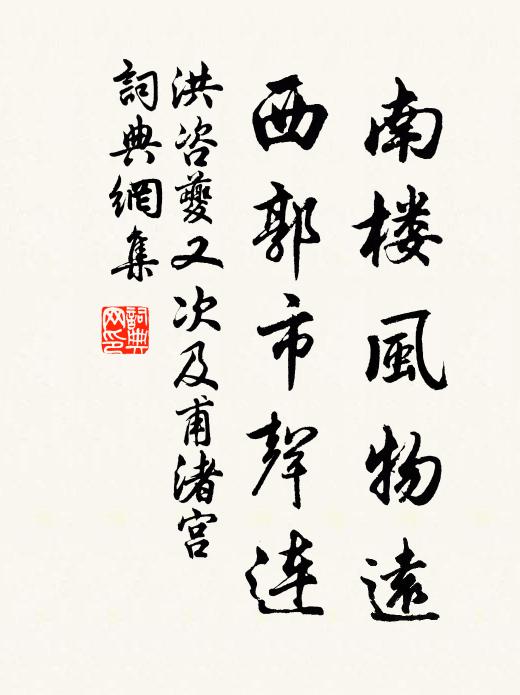 南楼風物遠
西郭市聲連
洪咨夔又次及甫渚宫
詞典網集
詞典网印